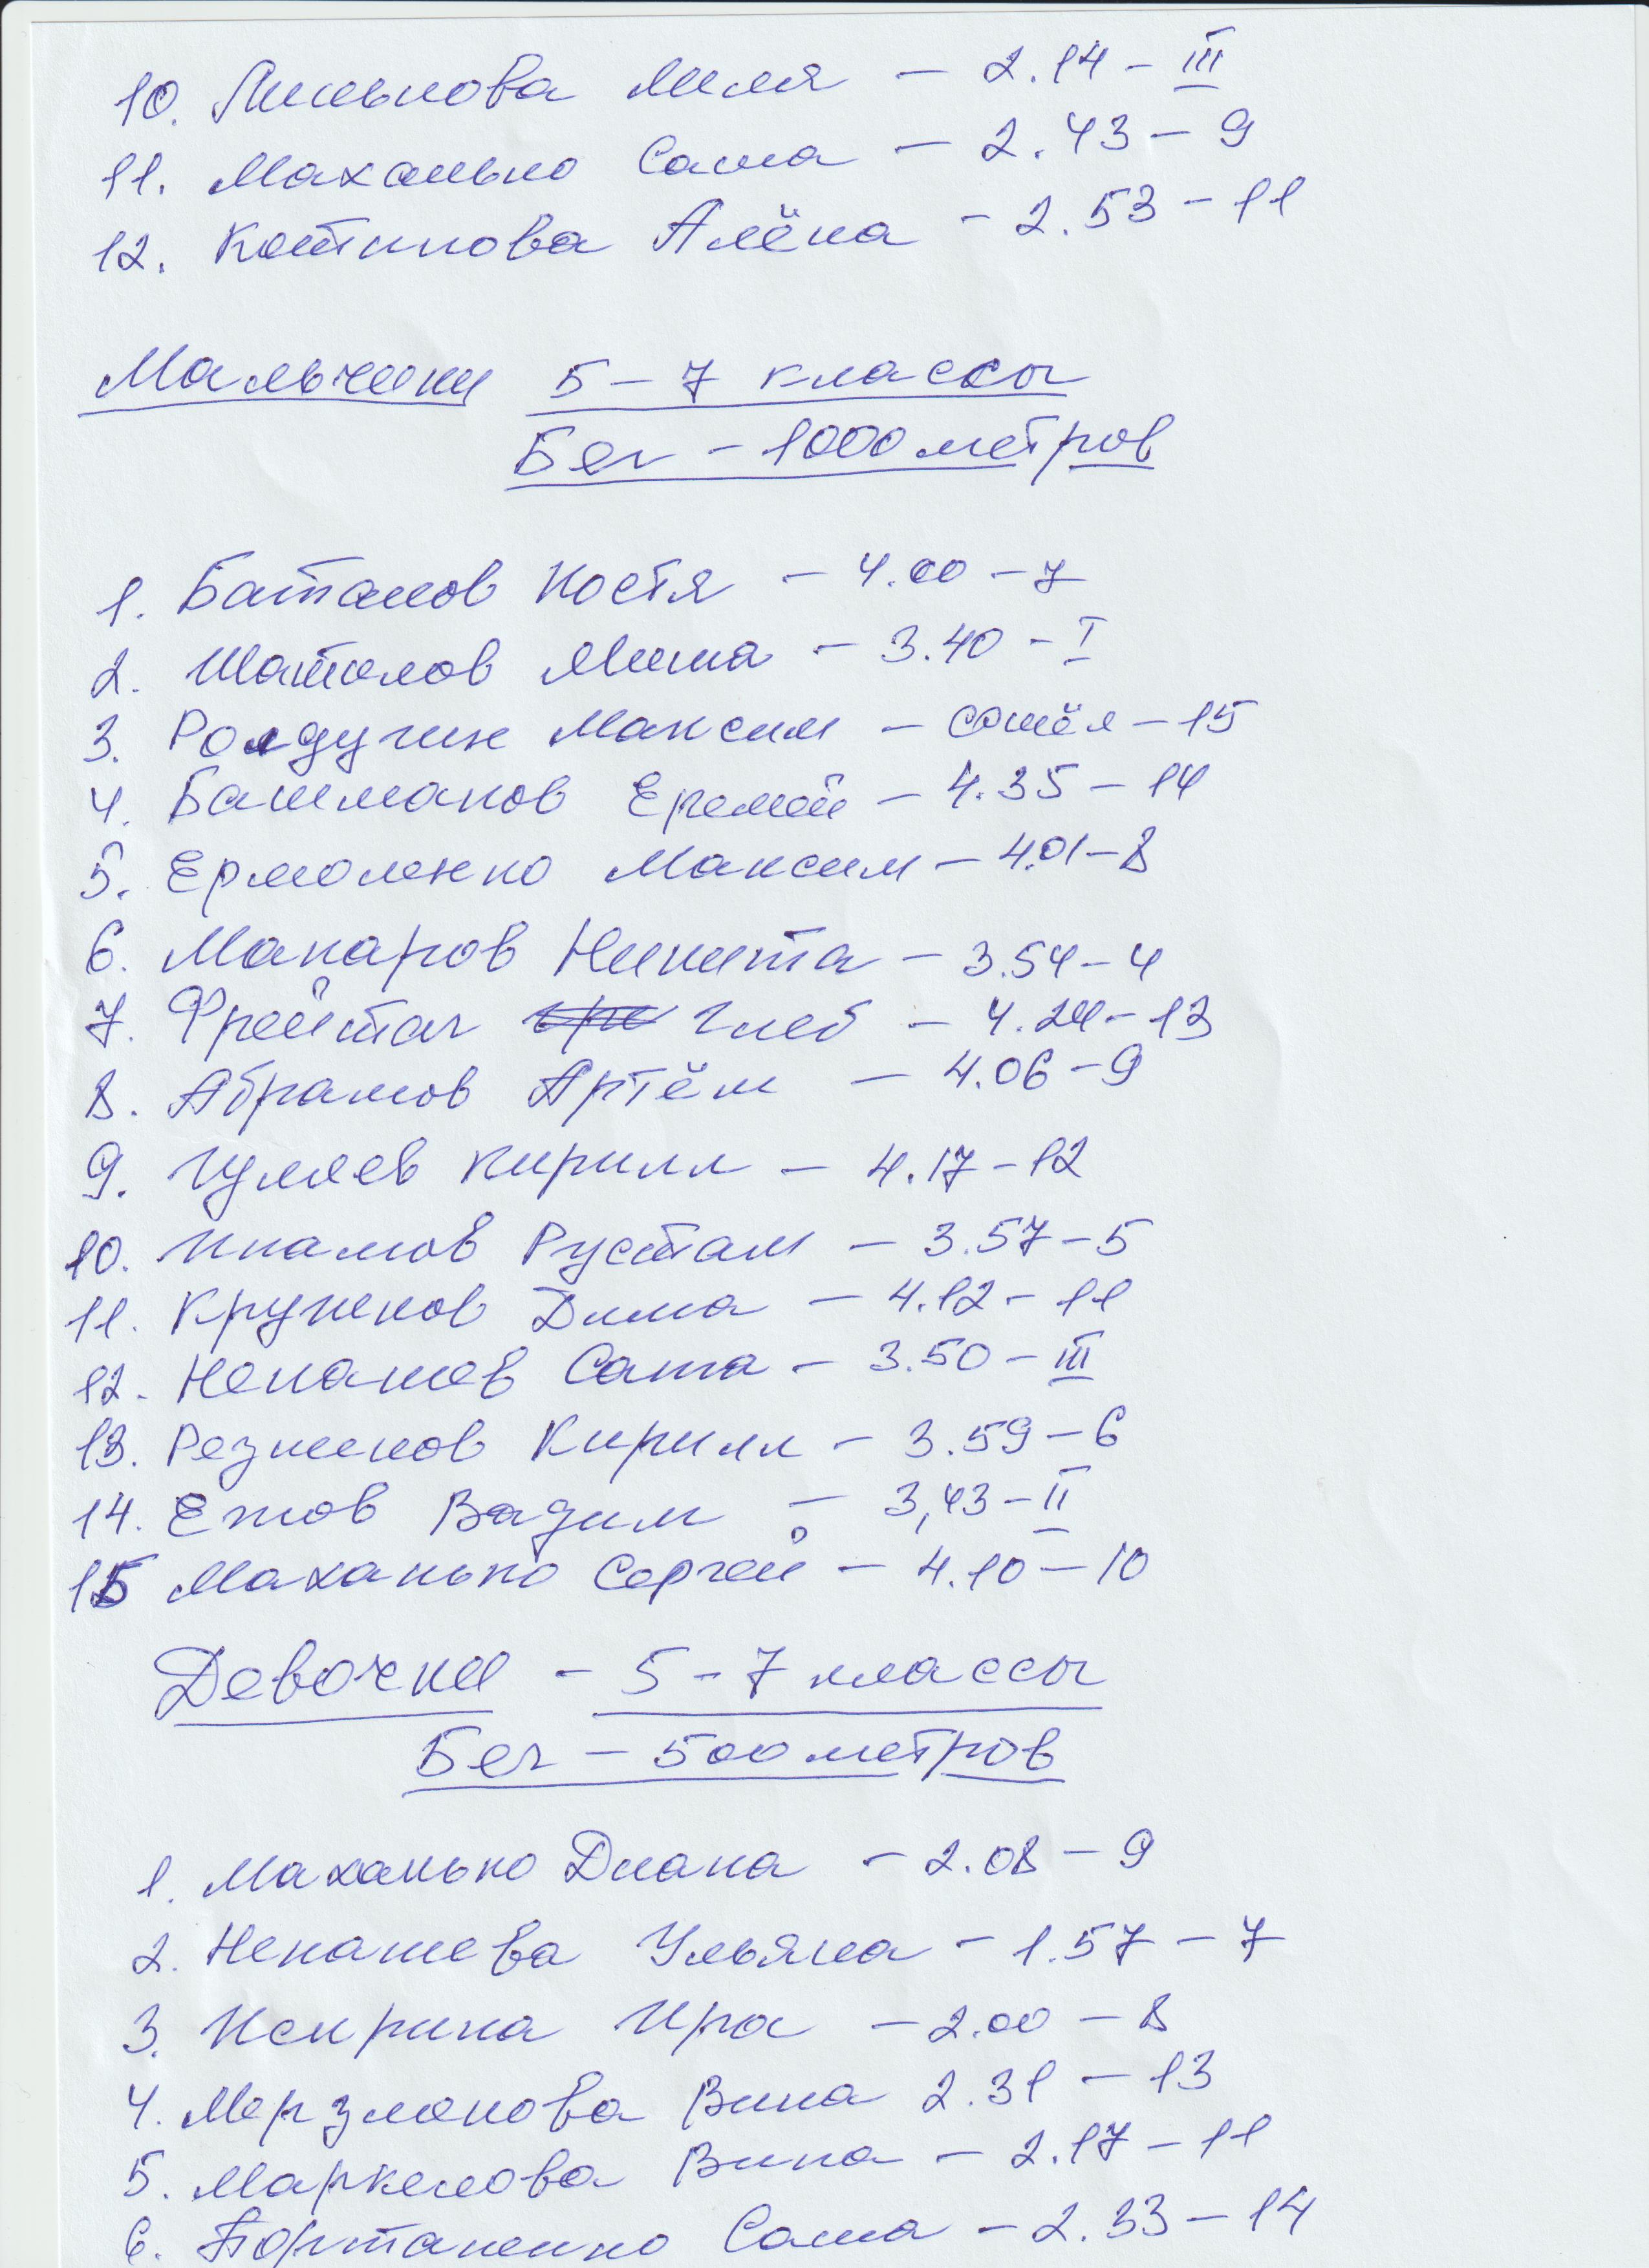 10. Пинькова Лиля – 2.14 – III
11. Маханько Саша – 2.43 – 9
12. Котикова Алёна – 2.53 – 11
Мальчики 5 – 7 классы
Бег – 1000 метров
1. Батанов Костя – 4.00 – 7
2. Шаталов Миша – 3.40 – I
3. Ролдугин Максим – сошёл – 15
4. Башмаков Еремей – 4.35 – 14
5. Ермоленко Максим – 4.01 – 8
6. Макаров Никита – 3.54 – 4
7. Фрейтаг Глеб – 4.24 – 13
8. Абрамов Артём – 4.06 – 9
9. Гуляев Кирилл – 4.17 – 12
10. Икамов Рустам – 3.57 – 5
11. Круженов Дима – 4.12 – 11
12. Ненашев Саша – 3.50 – III
13. Резников Кирилл – 3.59 – 6
14. Ежов Вадим – 3,43 – II
15 Маханько Сергей – 4.10 – 10
Девочки – 5 – 7 классы
Бег – 500 метров
1. Маханько Диана – 2.08 – 9
2. Ненашева Ульяна – 1.57 – 7
3. Ира – 2.00 – 8
4. Мерзлякова Вика 2.31 – 13
5. Маркелова Вика – 2.17 – 11
6. Саша – 2.33 – 14